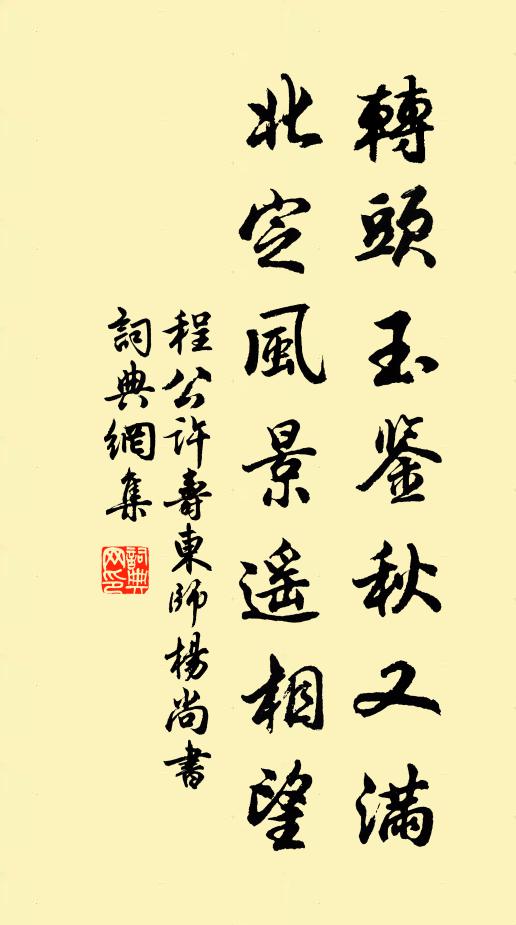 轉頭玉鉴秋又滿
北定風景遥相望
程公許壽東師楊尚書
詞典網集
詞典网印